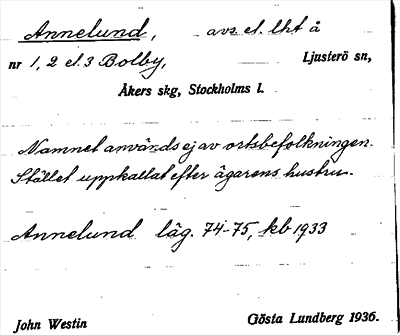 Annelund, avs el. lht å
nr 1, 2 el. 3 Bolby, Ljusterö sn,
Åkers skg, Stockholms l.
Namnet används ej av ortsbefolkningen.
Stället uppkallat efter ägarens hustru.
Annelund läg. 74-75, kb 1933
John Westin Gösta Lundberg 1936.